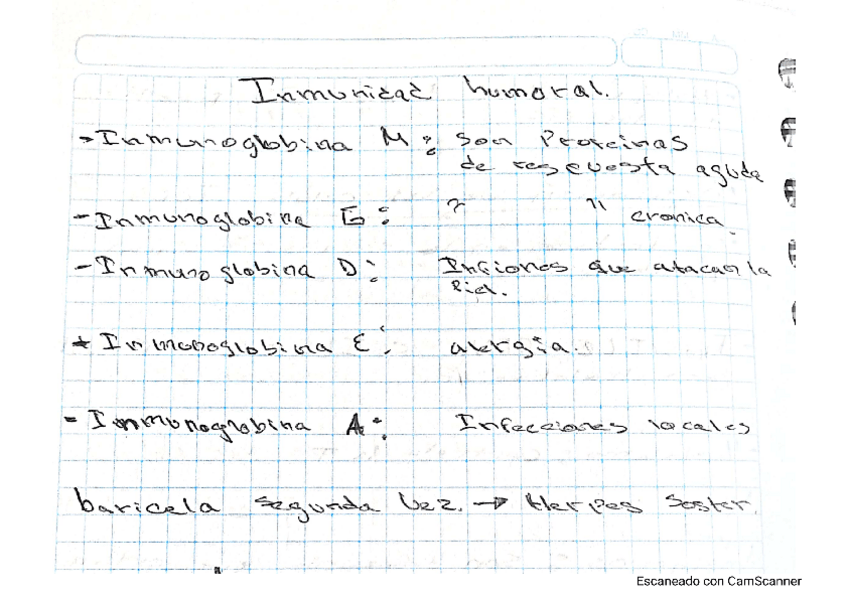 Inmunidad humoral.
-Inmunoglobina M: son Proteinas
de respuesta aguda
-Inmunoglobina G: " " cronica.
-Inmunoglobina D: Infiones que atacan la
Piel.
* Inmunoglobina E: alergia.
- Inmunoglobina A: Infecciones locales
baricela segunda vez. → Herpes Soster.
Escaneado con CamScanner